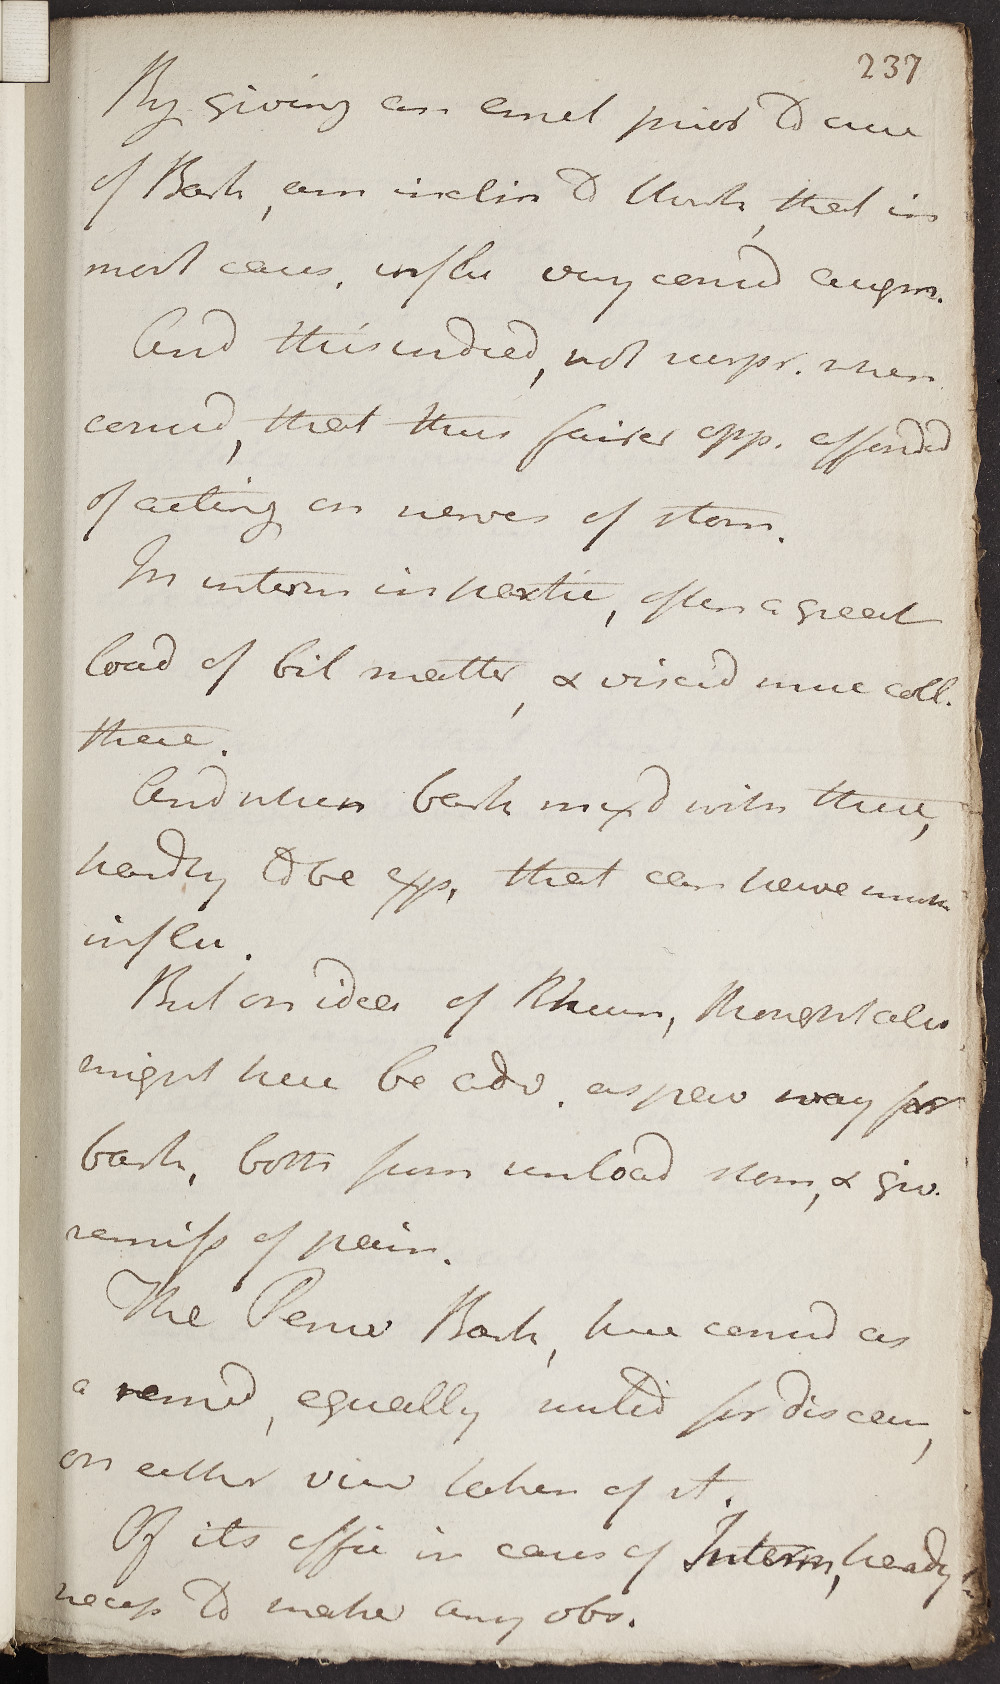 237
By giving an emet prior to use
of Bark, am inclin to think, that in
most cases, influ very consid augm.
And this indeed, not surpr. when
consid, that thus fairer opp. afforded
of acting on nerves of stom.
In interm in partic, often a great
load of bil matter, & viscid muc coll.
there.
And when bark mixd with these,
hardly to be exp, that can have much
influ.
But on idea of Rheum, thought also
might here be adv. as prev way for
bark, both from unload stom, & giv.
remiss of pain.
The Peruv Bark, have consid as
a remed, equally suited for disease,
on either view taken of it.
Of its effic in cases of Interm, hardly
necess to make any obs.